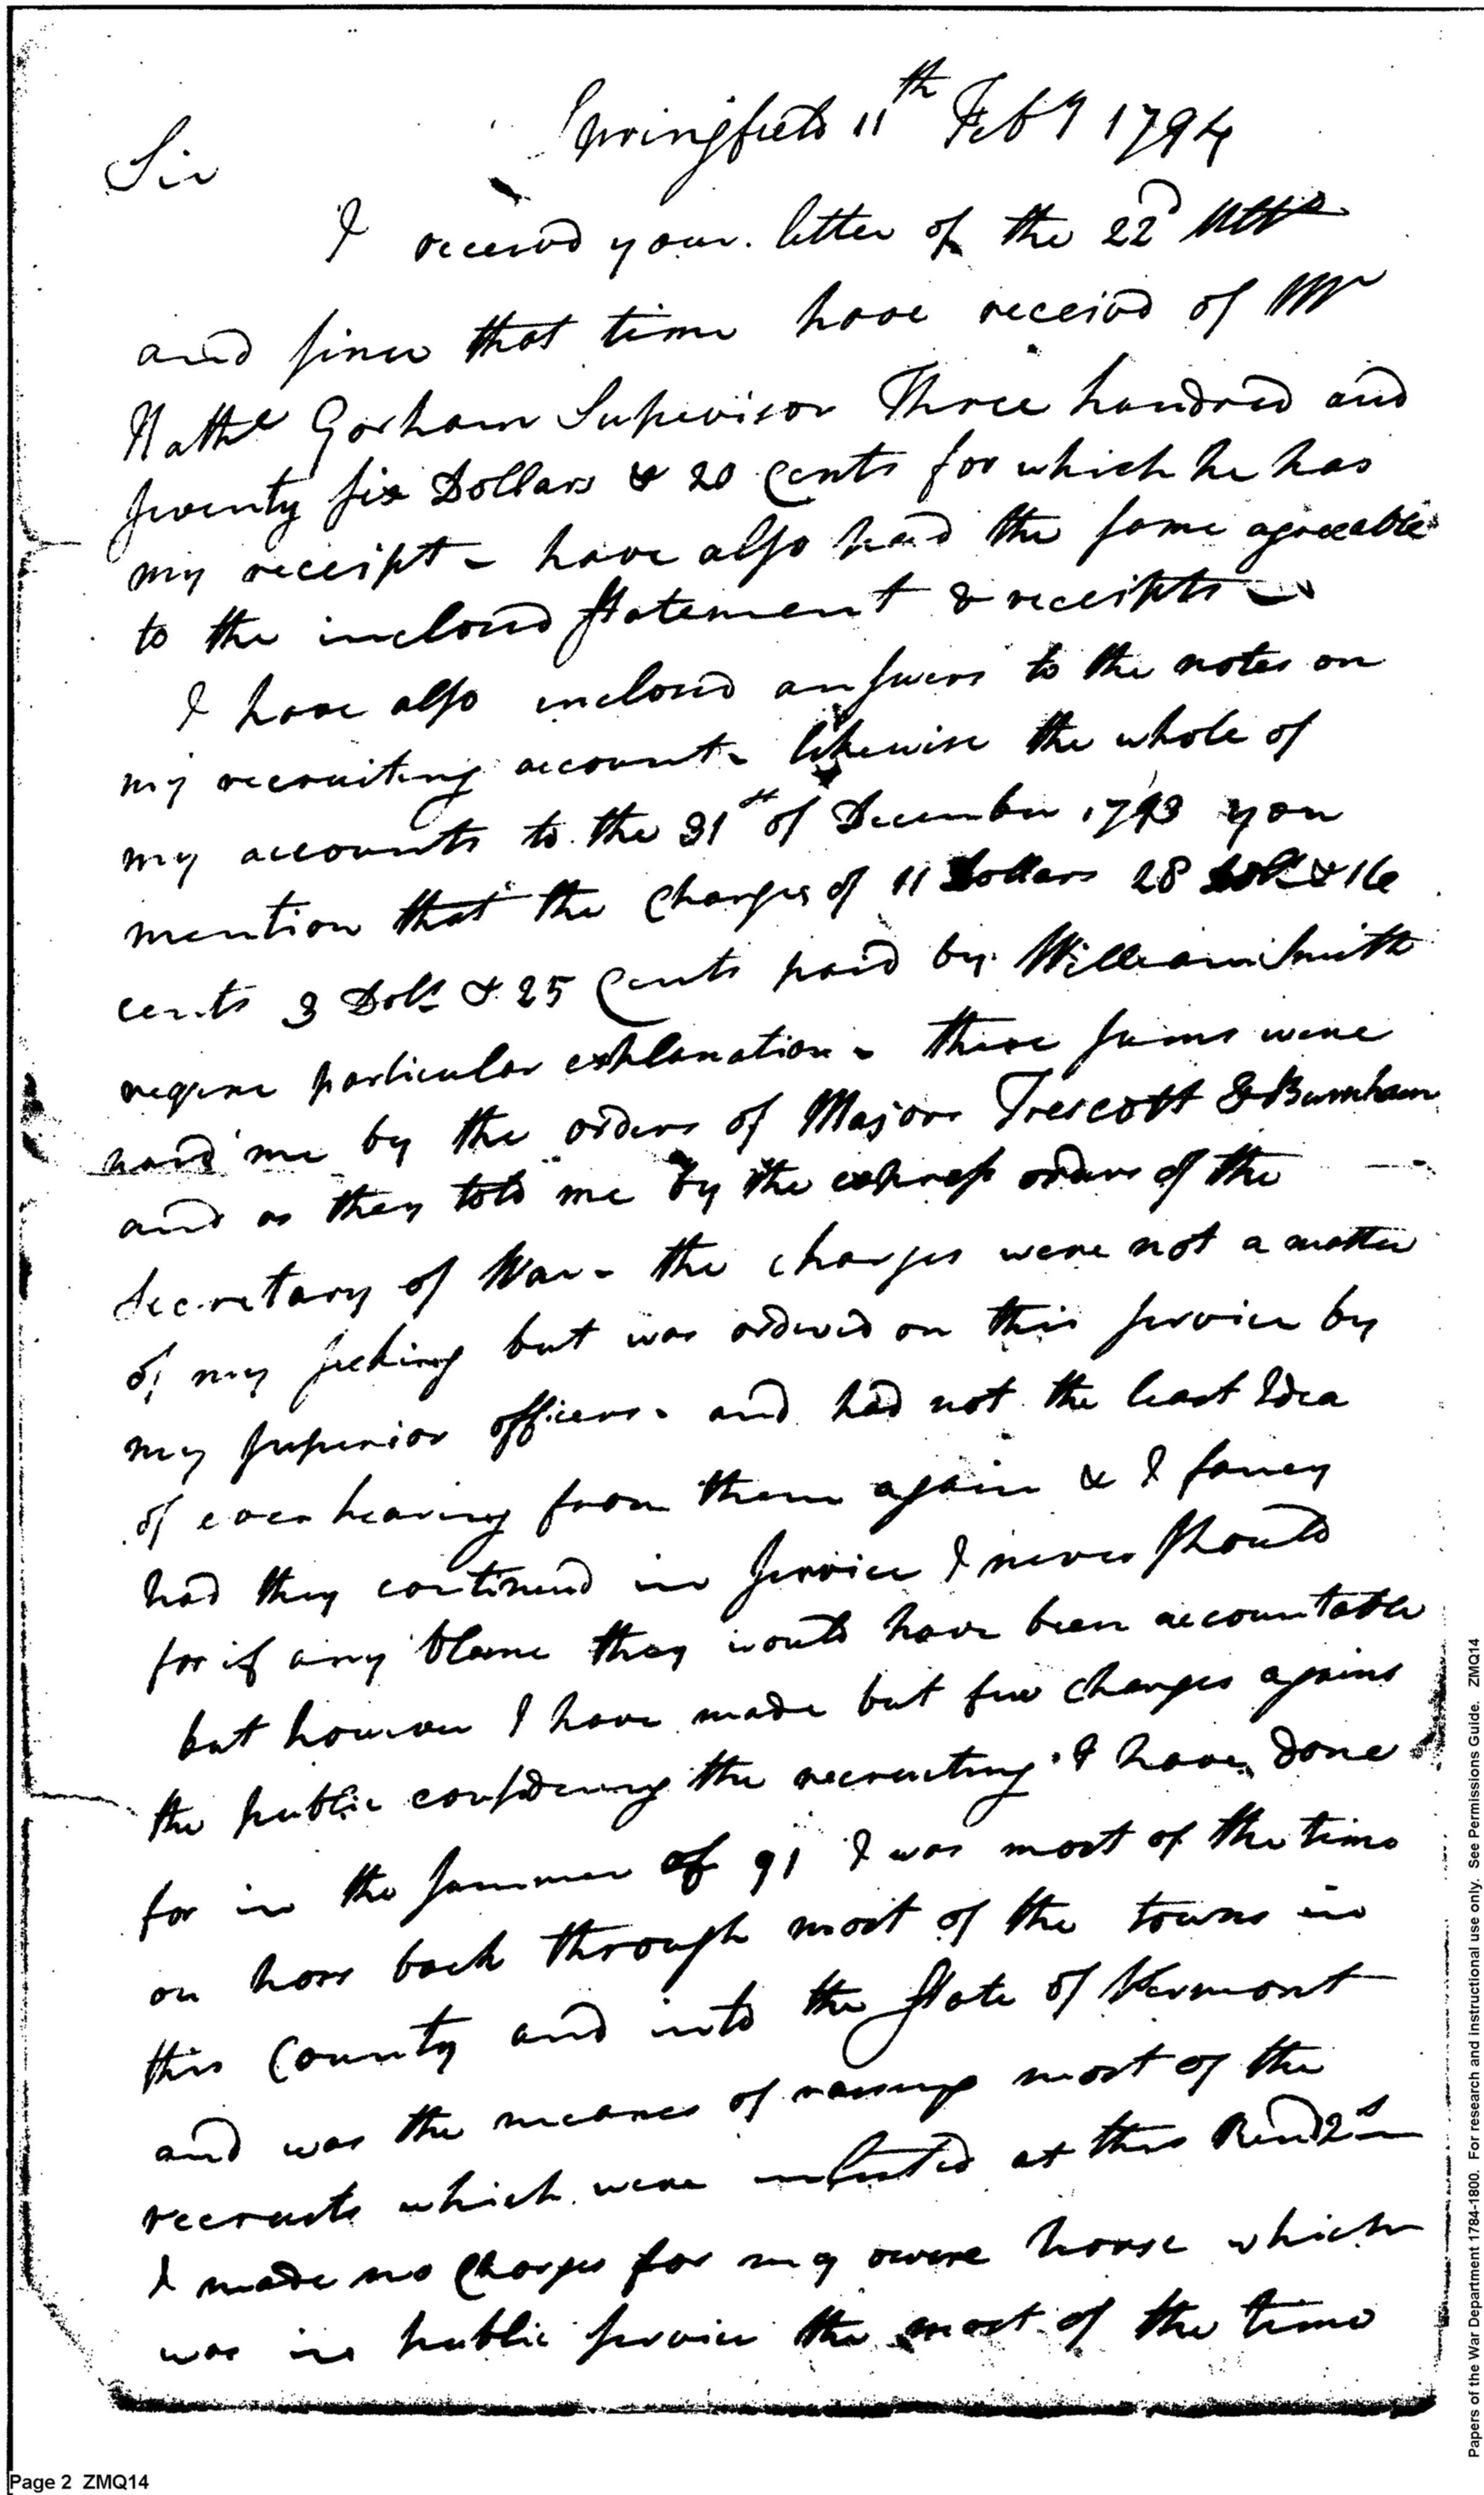 Springfield 11th Feby 1794
Sir
I receivd your letter of the 22d Ulto
and since that time have receivd of Mr
Nathl Gorham Supervisor Three hundred and
twenty six Dollars & 20 Cents for which he has
my receipt - have also paid the same agreeable
to the inclosd statement & receipts -
I have also inclosd answers to the notes on
my recruiting account - likewise the whole of
my accounts to the 31st of December 1793 you
mention that the Charges of 11 Dollars 28 Doll & 16
cents 3 Dolls & 25 Cents paid by William Smith
requre particular explanation - these sums were
paid me by the orders of Majors Trescott & Burnham
and as they told me by the express orders of the
Secretary of War - the charges were not a matter
of my seeking but was orderd on this service by
my superior officers - and had not the least Idea
of ever hearing from them again & I fancy
had they continued in service I never should
for if any blame they would have been accountable
but however I have made but few charges against
the public considering the recruiting I have done
for in the summer of 91 I was most of the time
on hors back through most of the towns in
this County and into the State of Vermont
and was the meanes of raising most of the
recruits which were inlisted at this Rendzs
I made no Charges for my owne horse which
was in public service the most of the time
Page 2 ZMQ14
Papers of the War Department 1784-1800. For research and instructional use only. See Permissions Guide. ZMQ14